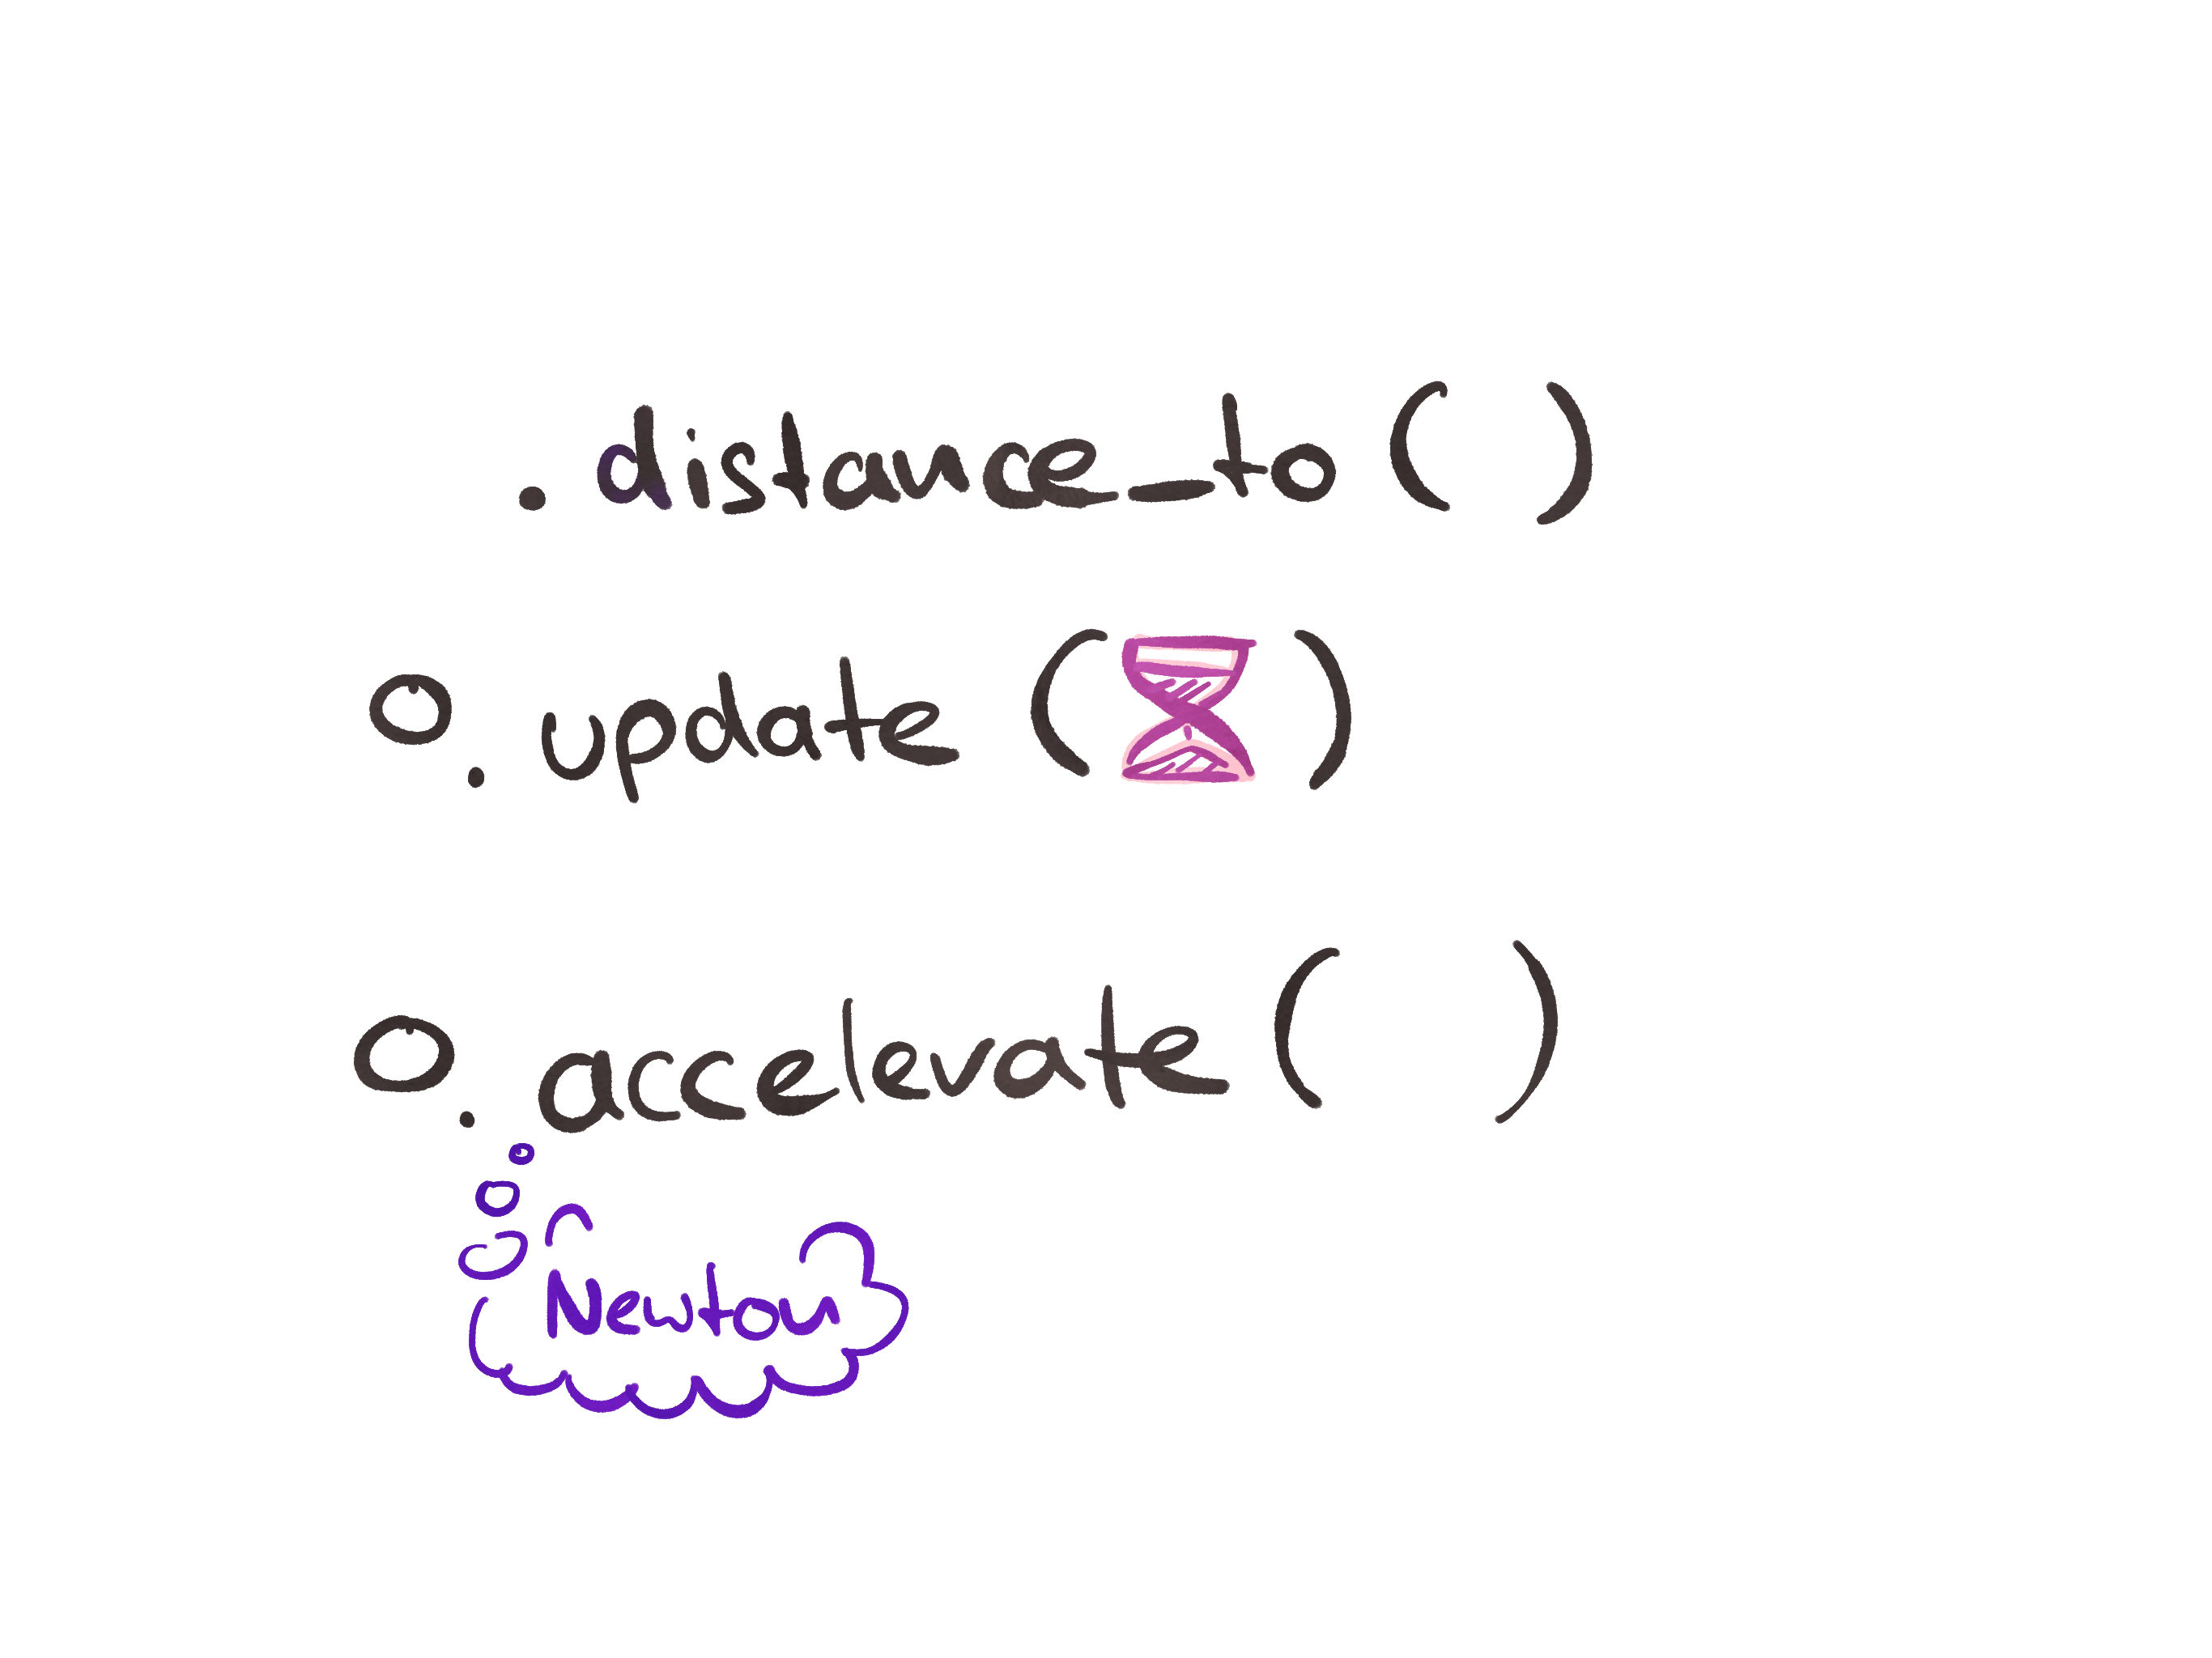 .distance_to ( )
.update ( )
.accelerate ( )
Newton